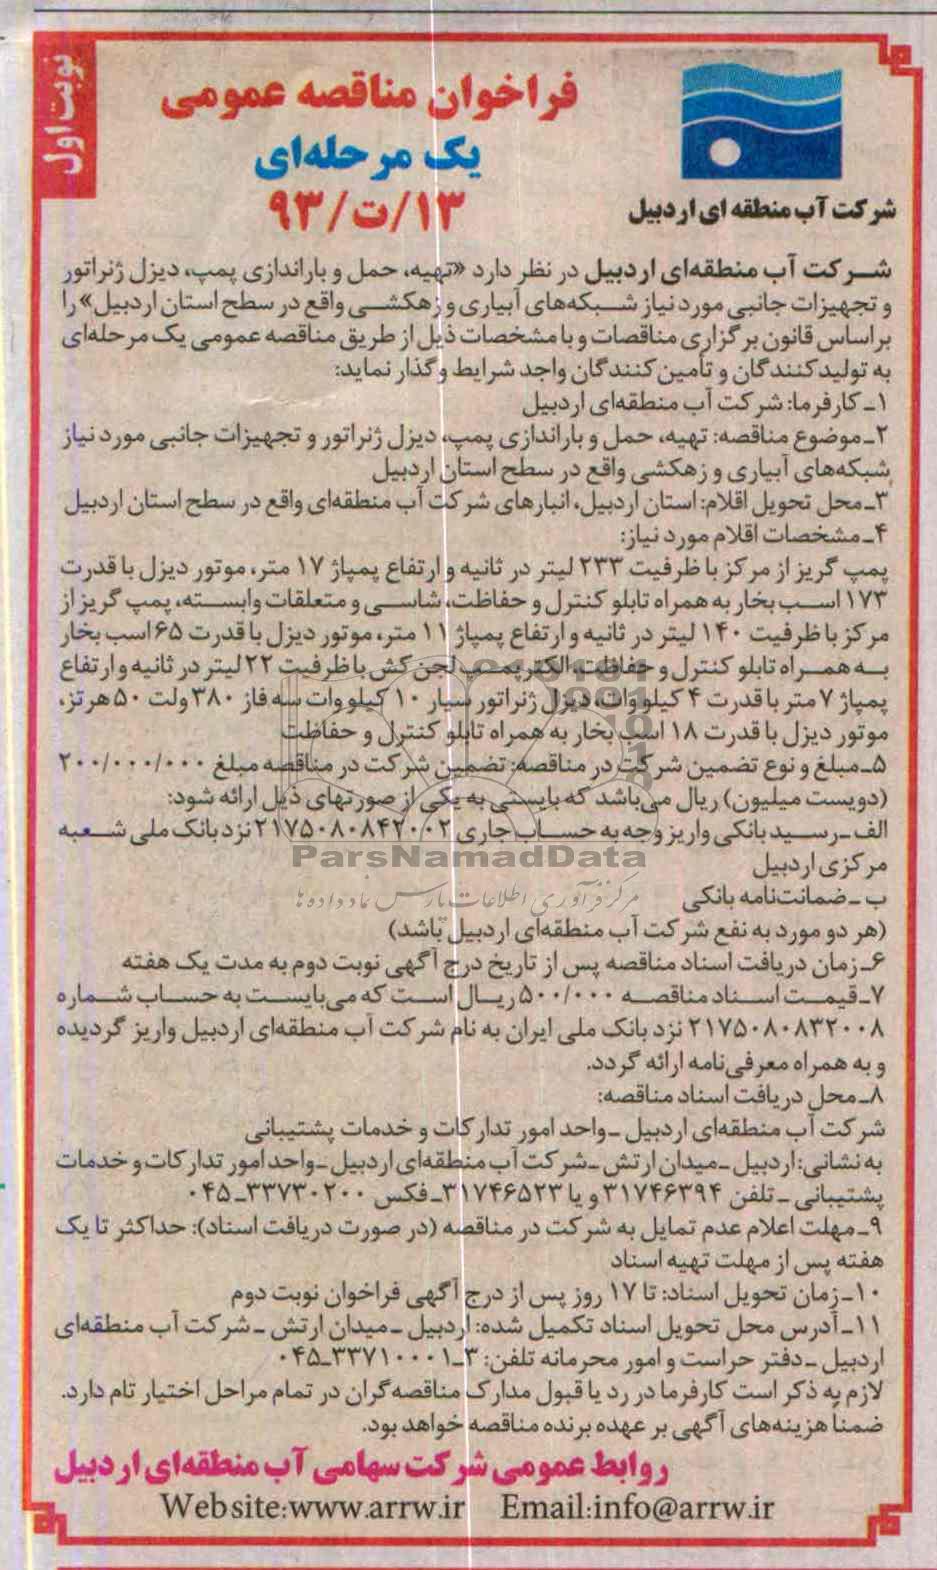 نوبت اول
فراخوان مناقصه عمومی
یک مرحله‌ای
۱۳/ت/۹۳
شرکت آب منطقه ای اردبیل
شرکت آب منطقه‌ای اردبیل در نظر دارد «تهیه، حمل و باراندازی پمپ، دیزل ژنراتور
و تجهیزات جانبی مورد نیاز شبکه‌های آبیاری و زهکشی واقع در سطح استان اردبیل» را
براساس قانون برگزاری مناقصات و با مشخصات ذیل از طریق مناقصه عمومی یک مرحله‌ای
به تولیدکنندگان و تأمین‌کنندگان واجد شرایط واگذار نماید:
۱ـ کارفرما: شرکت آب منطقه‌ای اردبیل
۲ـ موضوع مناقصه: تهیه، حمل و باراندازی پمپ، دیزل ژنراتور و تجهیزات جانبی مورد نیاز
شبکه‌های آبیاری و زهکشی واقع در سطح استان اردبیل
۳ـ محل تحویل اقلام: استان اردبیل، انبارهای شرکت آب منطقه‌ای واقع در سطح استان اردبیل
۴ـ مشخصات اقلام مورد نیاز:
پمپ گریز از مرکز با ظرفیت ۲۳۳ لیتر در ثانیه و ارتفاع پمپاژ ۱۷ متر، موتور دیزل با قدرت
۱۷۳ اسب بخار به همراه تابلو کنترل و حفاظت، شاسی و متعلقات وابسته، پمپ گریز از
مرکز با ظرفیت ۱۴۰ لیتر در ثانیه و ارتفاع پمپاژ ۱۱ متر، موتور دیزل با قدرت ۶۵ اسب بخار
به همراه تابلو کنترل و حفاظت، الکتروپمپ لجن کش با ظرفیت ۲۲ لیتر در ثانیه و ارتفاع
پمپاژ ۷ متر با قدرت ۴ کیلووات، دیزل ژنراتور سیار ۱۰ کیلووات سه فاز ۳۸۰ ولت ۵۰ هرتز،
موتور دیزل با قدرت ۱۸ اسب بخار به همراه تابلو کنترل و حفاظت
۵ـ مبلغ و نوع تضمین شرکت در مناقصه: تضمین شرکت در مناقصه مبلغ ۲۰۰/۰۰۰/۰۰۰
(دویست میلیون) ریال می‌باشد که بایستی به یکی از صورتهای ذیل ارائه شود:
الف ـ رسید بانکی واریز وجه به حساب جاری ۲۱۷۵۰۸۰۸۴۲۰۰۲ نزد بانک ملی شعبه
مرکزی اردبیل
ب ـ ضمانت‌نامه بانکی
(هر دو مورد به نفع شرکت آب منطقه‌ای اردبیل باشد)
۶ـ زمان دریافت اسناد مناقصه پس از تاریخ درج آگهی نوبت دوم به مدت یک هفته
۷ـ قیمت اسناد مناقصه ۵۰۰/۰۰۰ ریال است که می‌بایست به حساب شماره
۲۱۷۵۰۸۰۸۳۲۰۰۸ نزد بانک ملی ایران به نام شرکت آب منطقه‌ای اردبیل واریز گردیده
و به همراه معرفی‌نامه ارائه گردد.
۸ـ محل دریافت اسناد مناقصه:
شرکت آب منطقه‌ای اردبیل ـ واحد امور تدارکات و خدمات پشتیبانی
به نشانی: اردبیل ـ میدان ارتش ـ شرکت آب منطقه‌ای اردبیل ـ واحد امور تدارکات و خدمات
پشتیبانی ـ تلفن ۳۱۷۴۶۳۹۴ و یا ۳۱۷۴۶۵۲۳ـ فکس ۳۳۷۳۰۲۰۰ـ۰۴۵
۹ـ مهلت اعلام عدم تمایل به شرکت در مناقصه (در صورت دریافت اسناد): حداکثر تا یک
هفته پس از مهلت تهیه اسناد
۱۰ـ زمان تحویل اسناد: تا ۱۷ روز پس از درج آگهی فراخوان نوبت دوم
۱۱ـ آدرس محل تحویل اسناد تکمیل شده: اردبیل ـ میدان ارتش ـ شرکت آب منطقه‌ای
اردبیل ـ دفتر حراست و امور محرمانه تلفن: ۳ـ۳۳۷۱۰۰۰۱ـ۰۴۵
لازم به ذکر است کارفرما در رد یا قبول مدارک مناقصه‌گران در تمام مراحل اختیار تام دارد.
ضمناً هزینه‌های آگهی بر عهده برنده مناقصه خواهد بود.
روابط عمومی شرکت سهامی آب منطقه‌ای اردبیل
Website:www.arrw.ir Email:info@arrw.ir
ParsNamadData
مرکز فرآوری اطلاعات پارس نماد داده ها